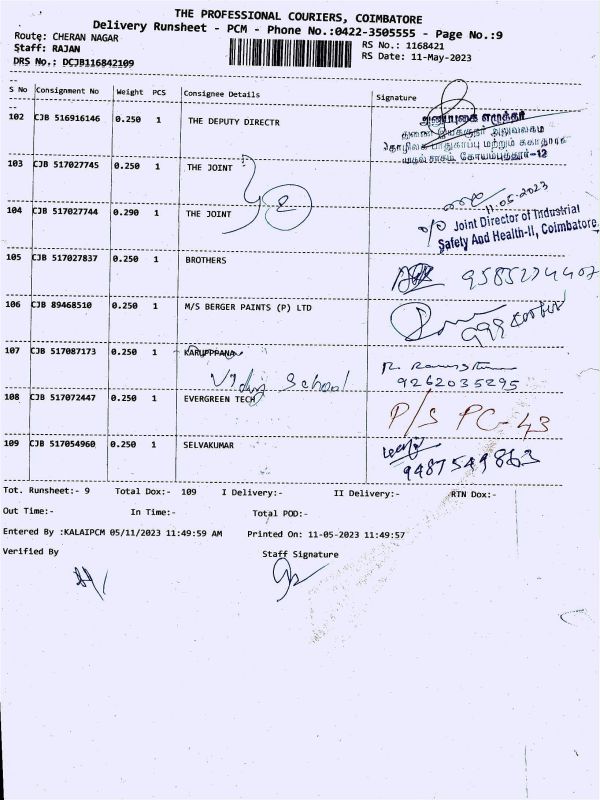 THE PROFESSIONAL COURIERS, COIMBATORE
Delivery Runsheet - PCM - Phone No.:0422-3505555 - Page No.:9
Route: CHERAN NAGAR
RS No.: 1168421
Staff: RAJAN
RS Date: 11-May-2023
DRS No.: DCJB116842109
S No Consignment No Weight PCS Consignee Details Signature
102 CJB 516916146 0.250 1 THE DEPUTY DIRECTR
துணை இயக்குநர் அலுவலகம்
தொழிலக பாதுகாப்பு மற்றும் சுகாதாரம்
கோயம்புத்தூர்-12
103 CJB 517027745 0.250 1 THE JOINT
2
11.05.2023
104 CJB 517027744 0.290 1 THE JOINT
o/o Joint Director of Industrial
Safety And Health-II, Coimbatore.
105 CJB 517027837 0.250 1 BROTHERS
106 CJB 89468510 0.250 1 M/S BERGER PAINTS (P) LTD
107 CJB 517087173 0.250 1 KARUPPPANA
School
9262035295
108 CJB 517072447 0.250 1 EVERGREEN TECH
P/S PC-43
109 CJB 517054960 0.250 1 SELVAKUMAR
9487549863
Tot. Runsheet:- 9 Total Dox:- 109 I Delivery:- II Delivery:- RTN Dox:-
Out Time:- In Time:- Total POD:-
Entered By :KALAIPCM 05/11/2023 11:49:59 AM Printed On: 11-05-2023 11:49:57
Verified By Staff Signature